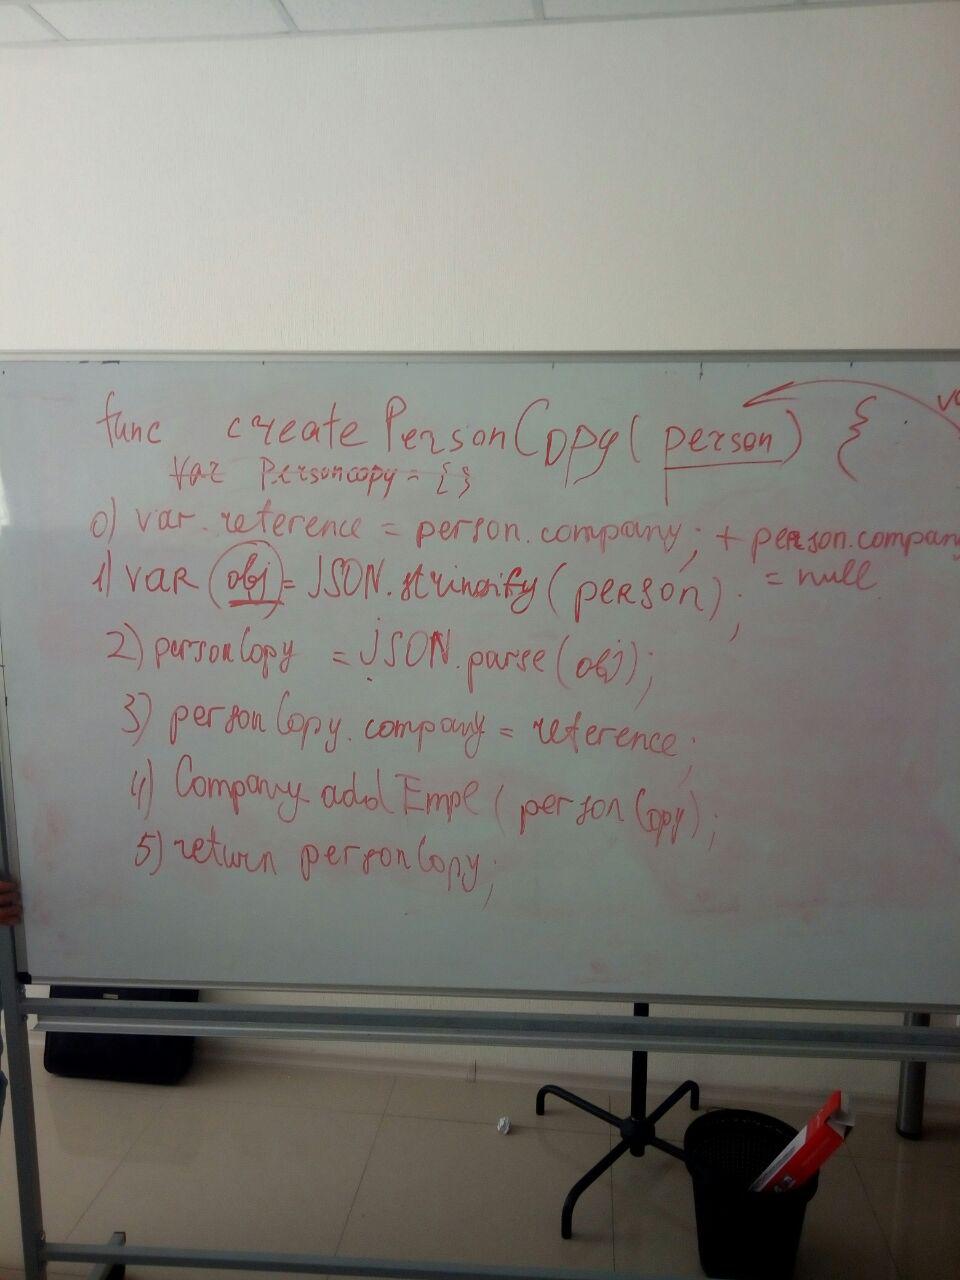 func createPersonCopy(person) {
var Personcopy = {}
0) var reference = person.company; + person.company
= null
1) var obj = JSON.stringify(person);
2) personCopy = JSON.parse(obj);
3) personCopy.company = reference;
4) Company addEmpl(personCopy);
5) return personCopy;